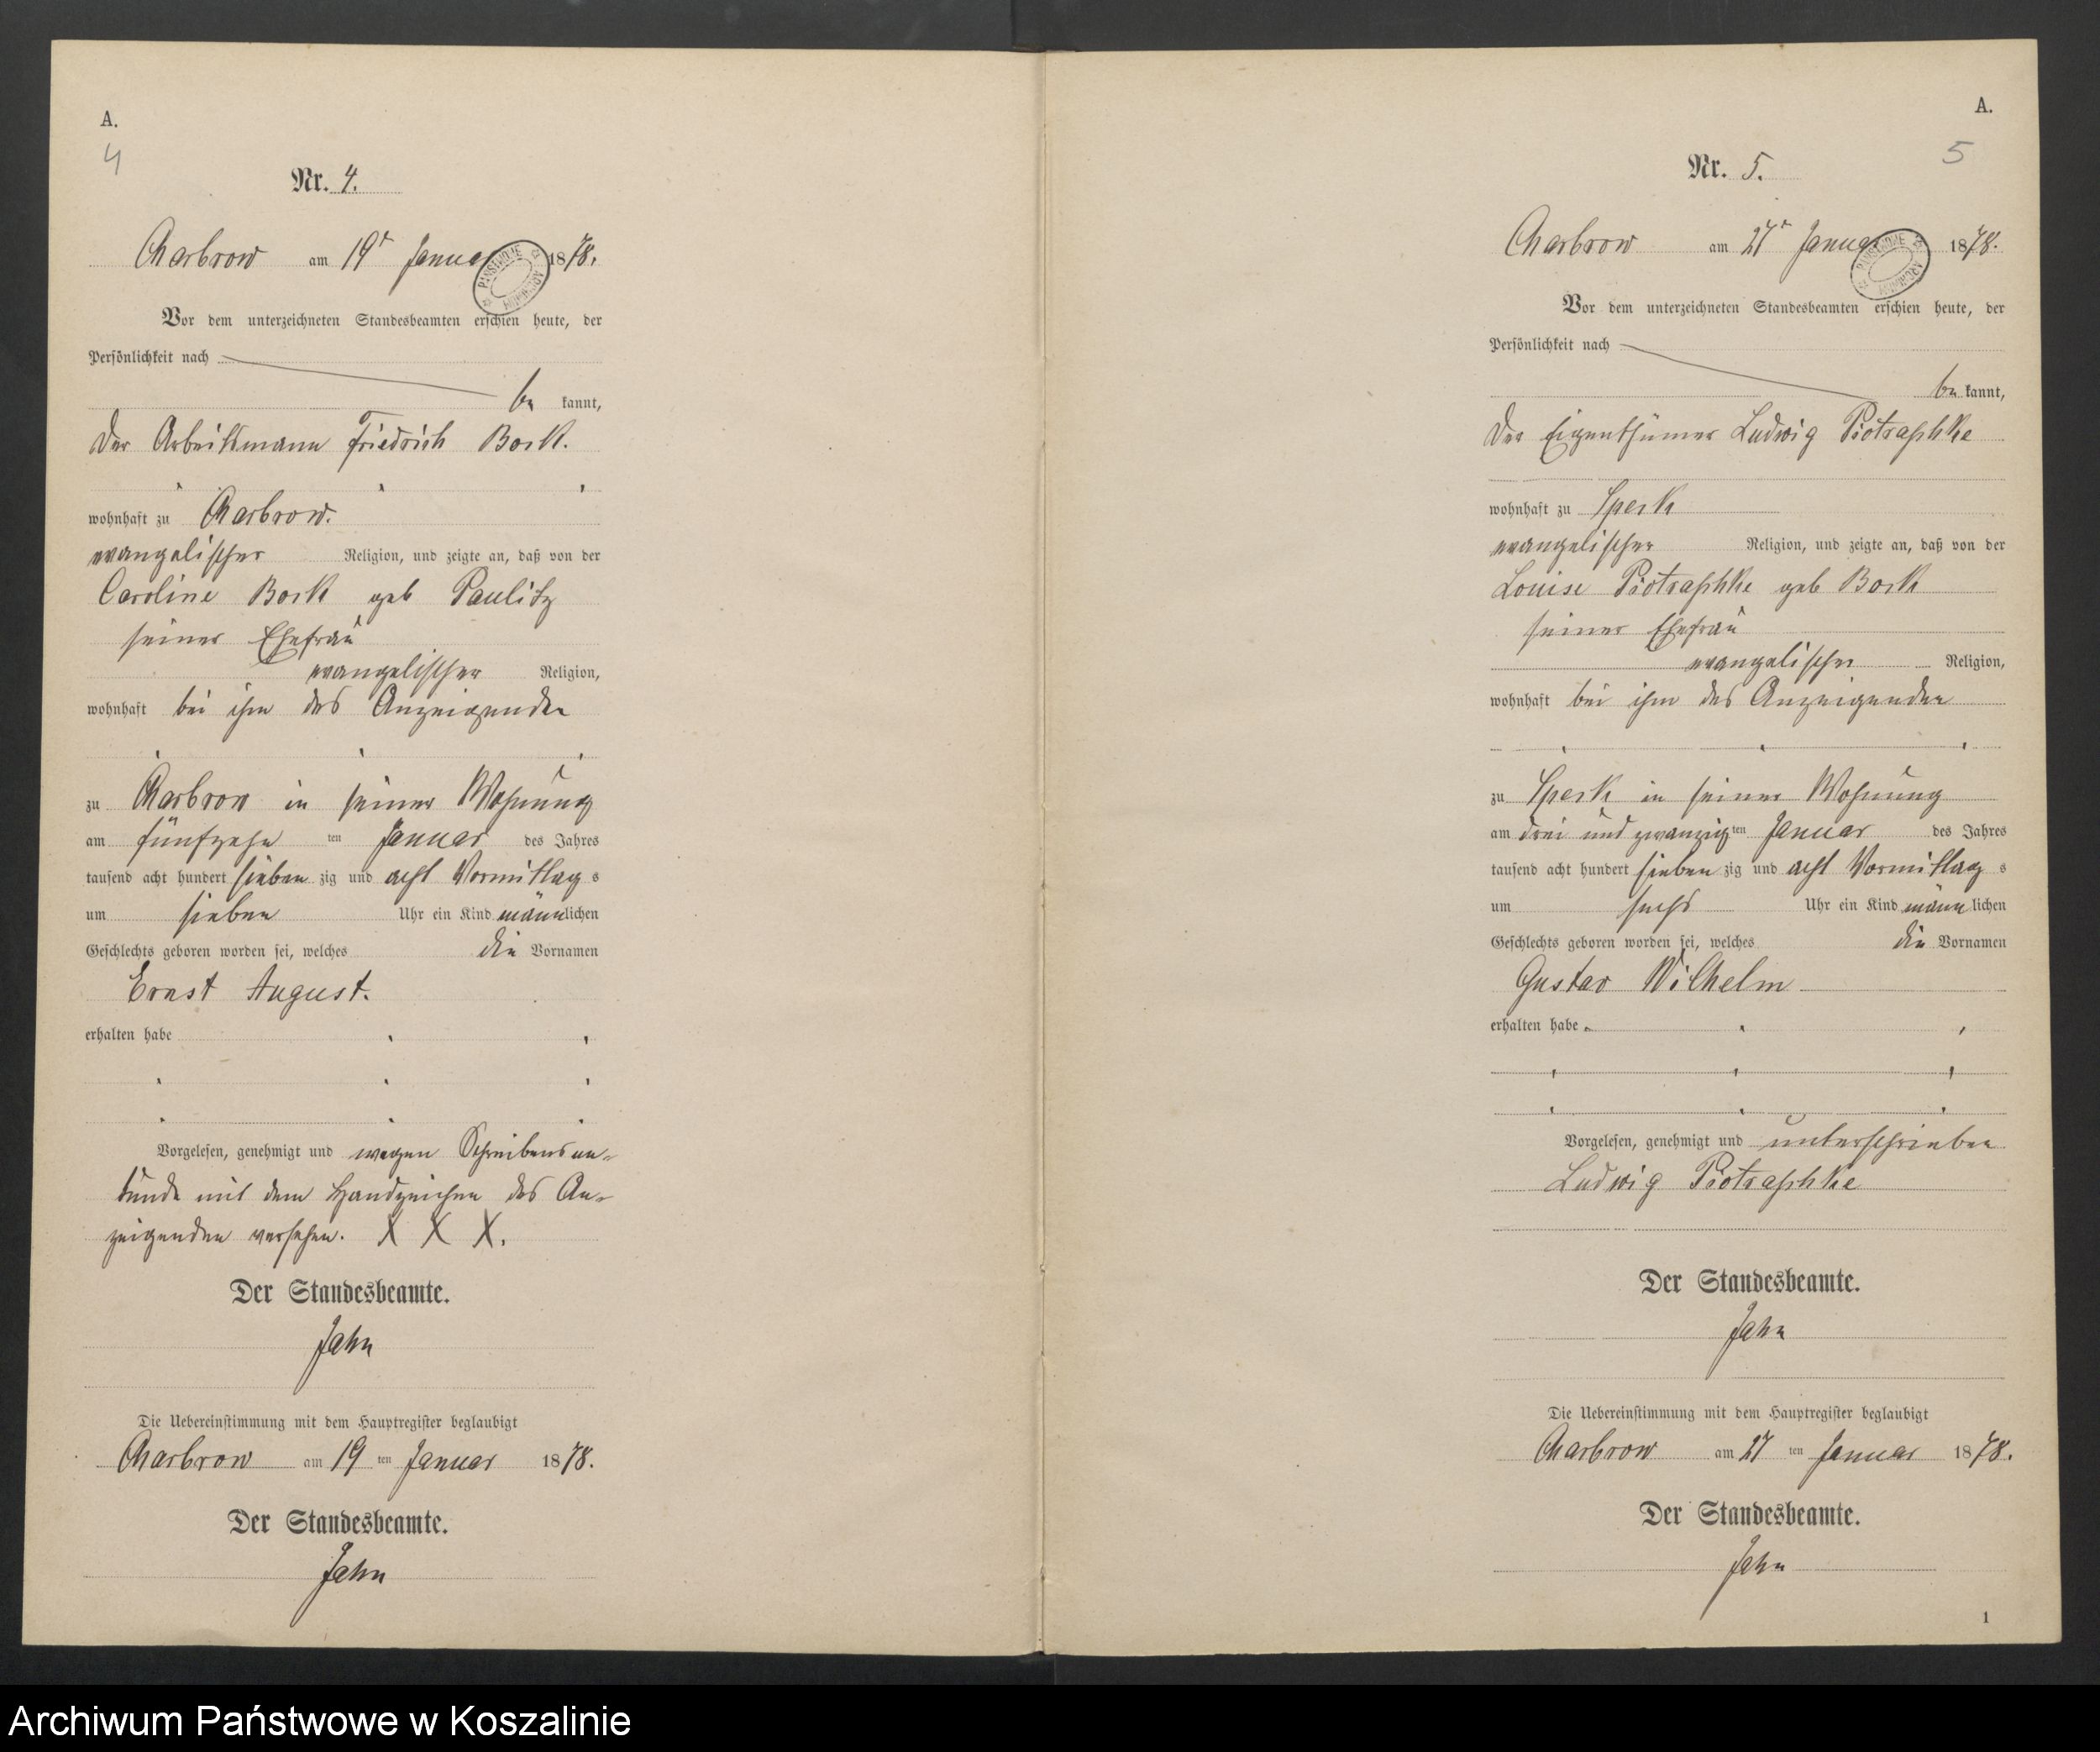 A.
4
Nr. 4.
Charbrow am 19t Januar 1878.
Vor dem unterzeichneten Standesbeamten erschien heute, der
Persönlichkeit nach
be kannt,
der Arbeitsmann Friedrich Bork.
wohnhaft zu Charbrow.
evangelischer Religion, und zeigte an, daß von der
Caroline Bork geb Paulitz
seiner Ehefrau
evangelischer Religion,
wohnhaft bei ihm des Anzeigenden
zu Charbrow in seiner Wohnung
am fünfzehn ten Januar des Jahres
tausend acht hundert sieben zig und acht Vormittag s
um sieben Uhr ein Kind männlichen
Geschlechts geboren worden sei, welches die Vornamen
Ernst August.
erhalten habe
Vorgelesen, genehmigt und wegen Schreibensun-
kunde mit dem Handzeichen des An-
zeigenden versehen. X X X.
Der Standesbeamte.
Jahn
Die Uebereinstimmung mit dem Hauptregister beglaubigt
Charbrow am 19 ten Januar 1878.
Der Standesbeamte.
Jahn
A.
5
Nr. 5.
Charbrow am 27t Januar 1878.
Vor dem unterzeichneten Standesbeamten erschien heute, der
Persönlichkeit nach
be kannt,
der Eigenthümer Ludwig Piotraschke
wohnhaft zu Speck
evangelischer Religion, und zeigte an, daß von der
Louise Piotraschke geb Bork
seiner Ehefrau
evangelischer Religion,
wohnhaft bei ihm des Anzeigenden
zu Speck in seiner Wohnung
am drei und zwanzig ten Januar des Jahres
tausend acht hundert sieben zig und acht Vormittag s
um sechs Uhr ein Kind männlichen
Geschlechts geboren worden sei, welches die Vornamen
Gustav Wilhelm
erhalten habe
Vorgelesen, genehmigt und unterschrieben
Ludwig Piotraschke
Der Standesbeamte.
Jahn
Die Uebereinstimmung mit dem Hauptregister beglaubigt
Charbrow am 27 ten Januar 1878.
Der Standesbeamte.
Jahn
1
Archiwum Państwowe w Koszalinie